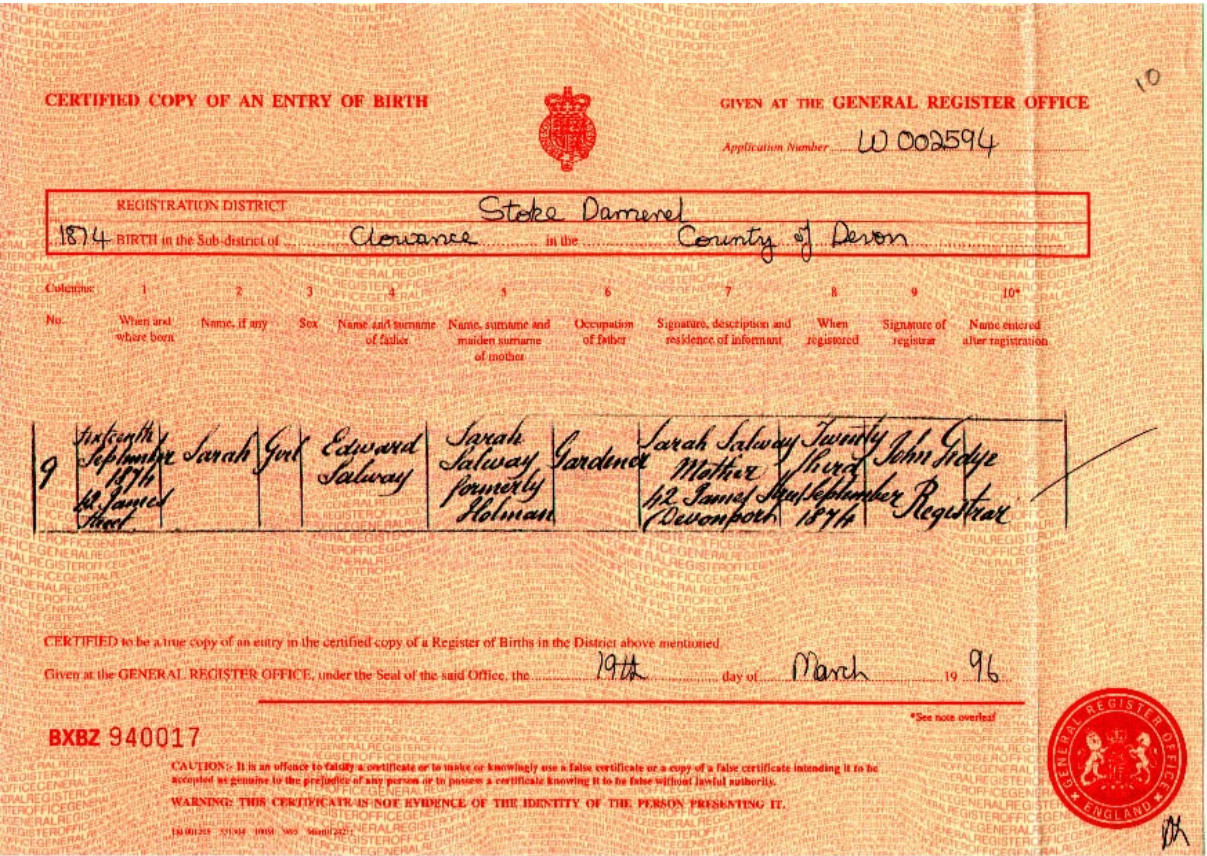 10
CERTIFIED COPY OF AN ENTRY OF BIRTH
GIVEN AT THE GENERAL REGISTER OFFICE
Application Number W 002594
REGISTRATION DISTRICT Stoke Damerel
1874 BIRTH in the Sub-district of Clowance in the County of Devon
Columns: 1 2 3 4 5 6 7 8 9 10*
No. When and where born Name, if any Sex Name and surname of father Name, surname and maiden surname of mother Occupation of father Signature, description and residence of informant When registered Signature of registrar Name entered after registration
9 Sixteenth September 1874 42 James Street Sarah Girl Edward Salway Sarah Salway formerly Holman Gardener Sarah Salway Mother 42 James Street Devonport Twenty third September 1874 John Gidye Registrar
CERTIFIED to be a true copy of an entry in the certified copy of a Register of Births in the District above mentioned.
Given at the GENERAL REGISTER OFFICE, under the Seal of the said Office, the 19th day of March 19 96
*See note overleaf
BXBZ 940017
CAUTION:- It is an offence to falsify a certificate or to make or knowingly use a false certificate or a copy of a false certificate intending it to be
accepted as genuine to the prejudice of any person or to possess a certificate knowing it to be false without lawful authority.
WARNING: THIS CERTIFICATE IS NOT EVIDENCE OF THE IDENTITY OF THE PERSON PRESENTING IT.
GENERAL REGISTER OFFICE
ENGLAND